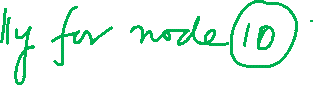 lly for node 10